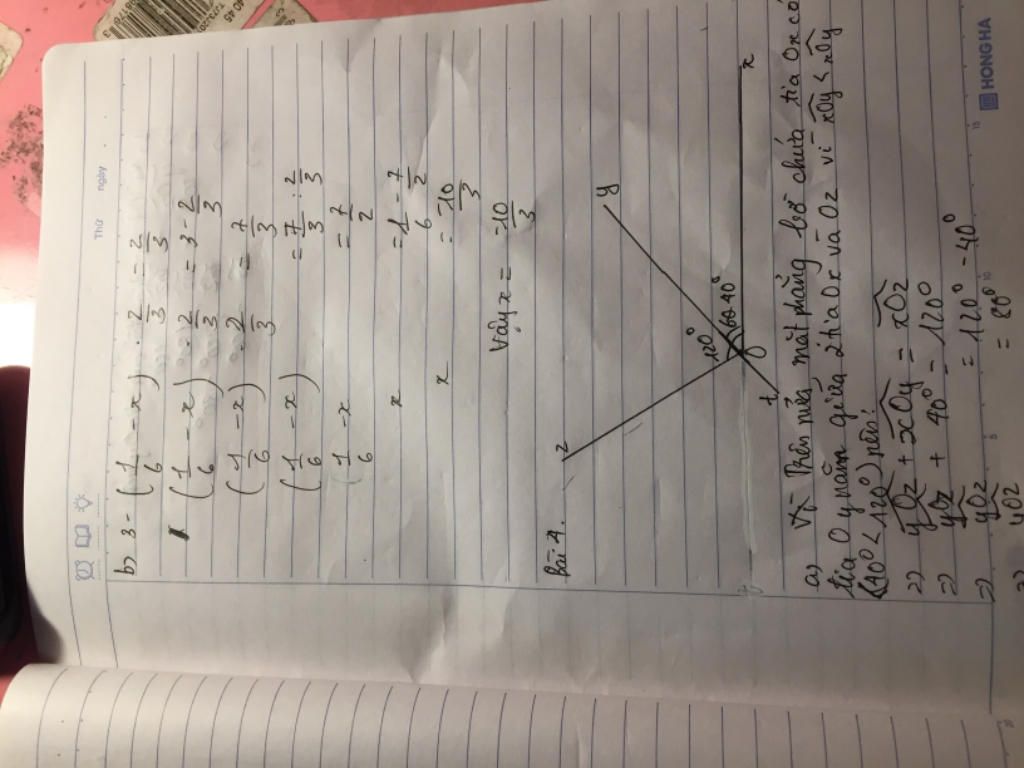 Thứ
ngày
b) 3 - (1/6 - x) . 2/3 = 2/3
(1/6 - x) . 2/3 = 3 - 2/3
(1/6 - x) . 2/3 = 7/3
(1/6 - x) = 7/3 : 2/3
1/6 - x = 7/2
x = 1/6 - 7/2
x = -10/3
Vậy x = -10/3
Bài 4.
z
y
120°
40°
x
O
t
a) Vì Trên nửa mặt phẳng bờ chứa tia Ox có
tia Oy nằm giữa 2 tia Ox và Oz vì xOy < xOz
(40° < 120°) nên:
=) yOz + xOy = xOz
=) yOz + 40° = 120°
=) yOz = 120° - 40°
=) yOz = 80°
HONG HA